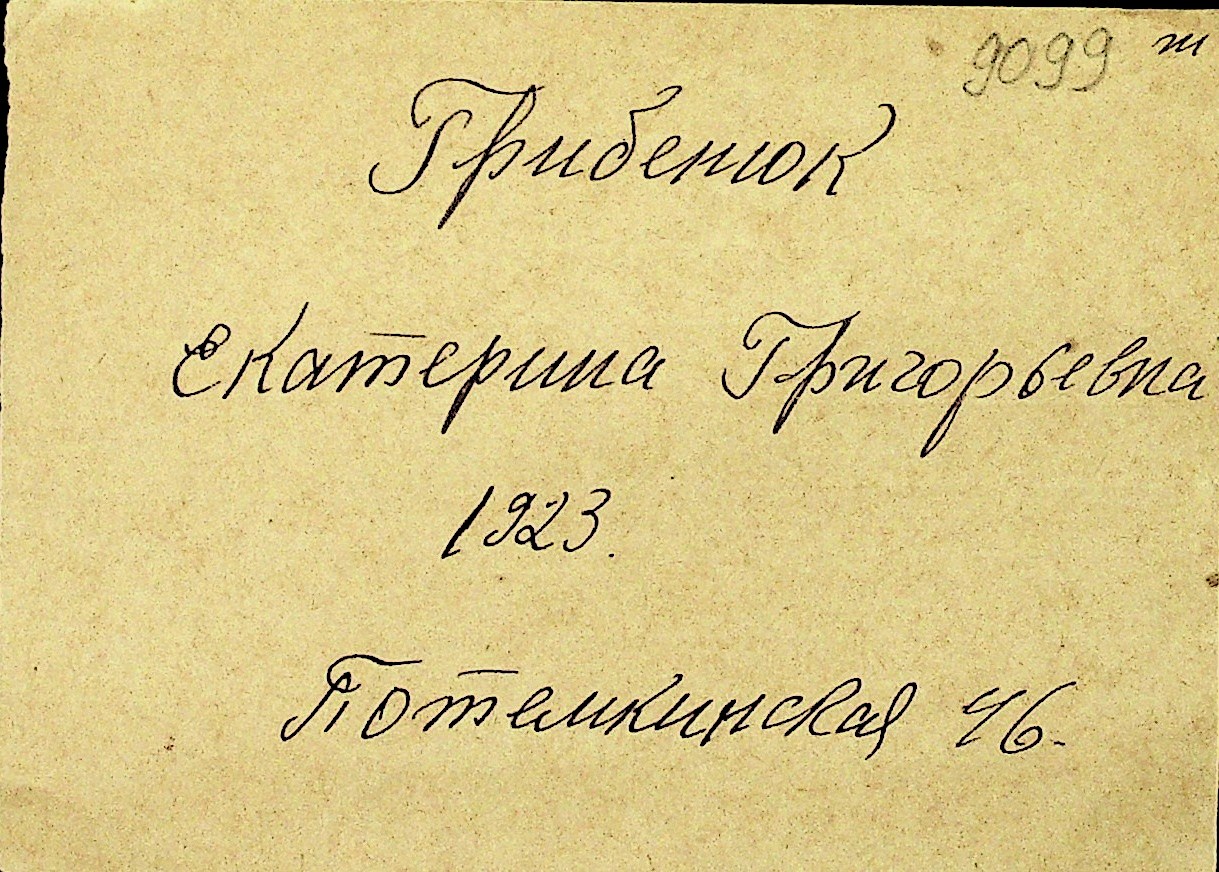 9099 т
Грибенюк
Екатерина Григорьевна
1923.
Потемкинская 46.